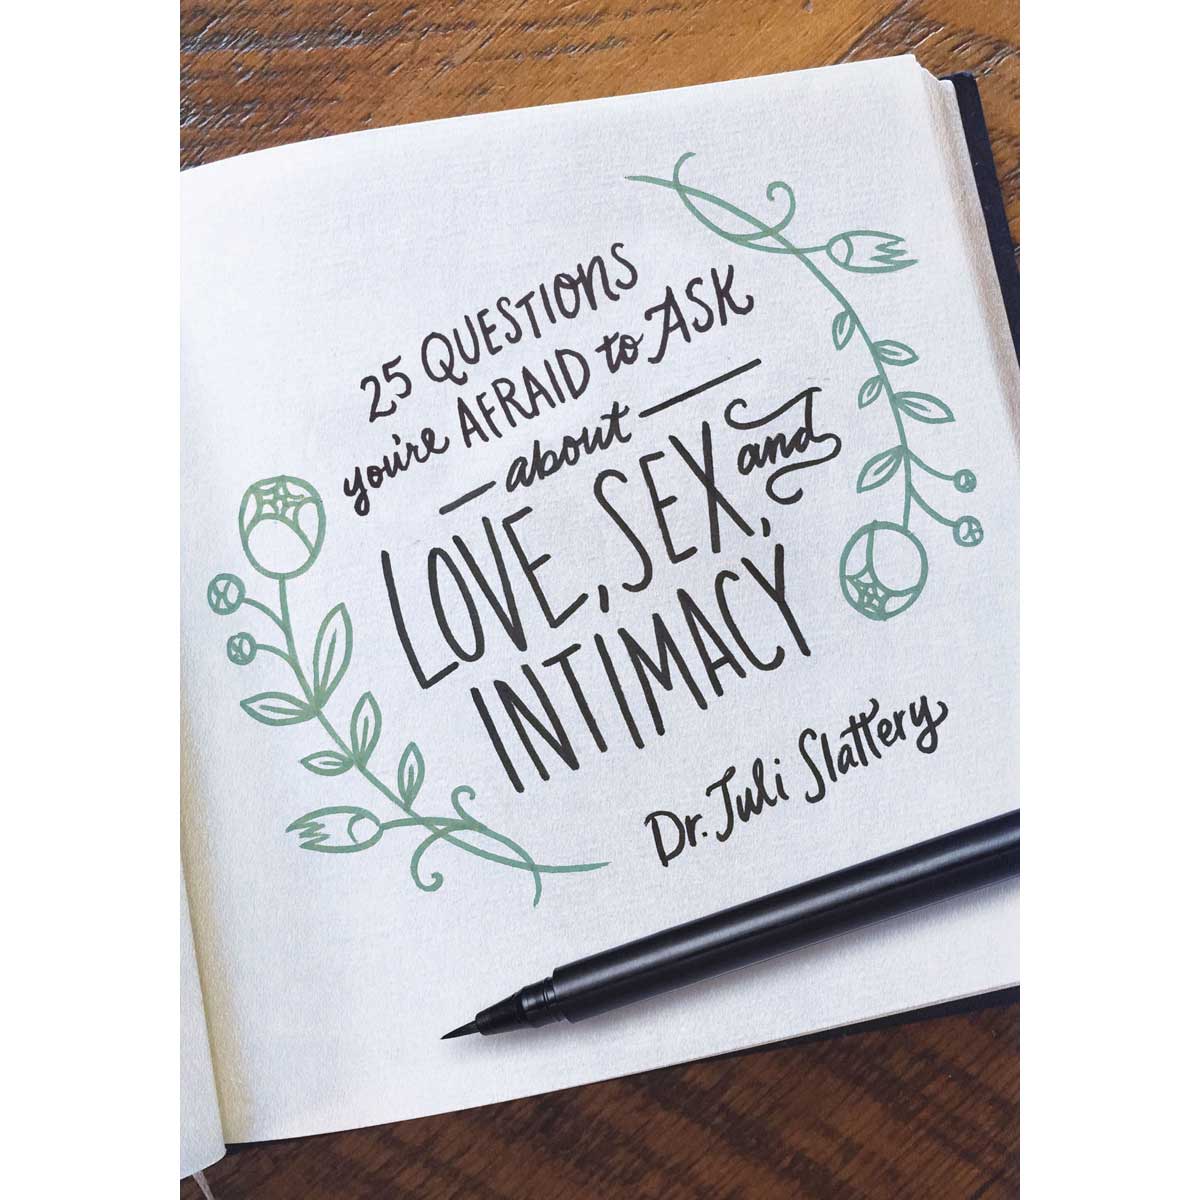 25 QUESTIONS
you're AFRAID to ASK
about
LOVE, SEX, and
INTIMACY
Dr. Juli Slattery